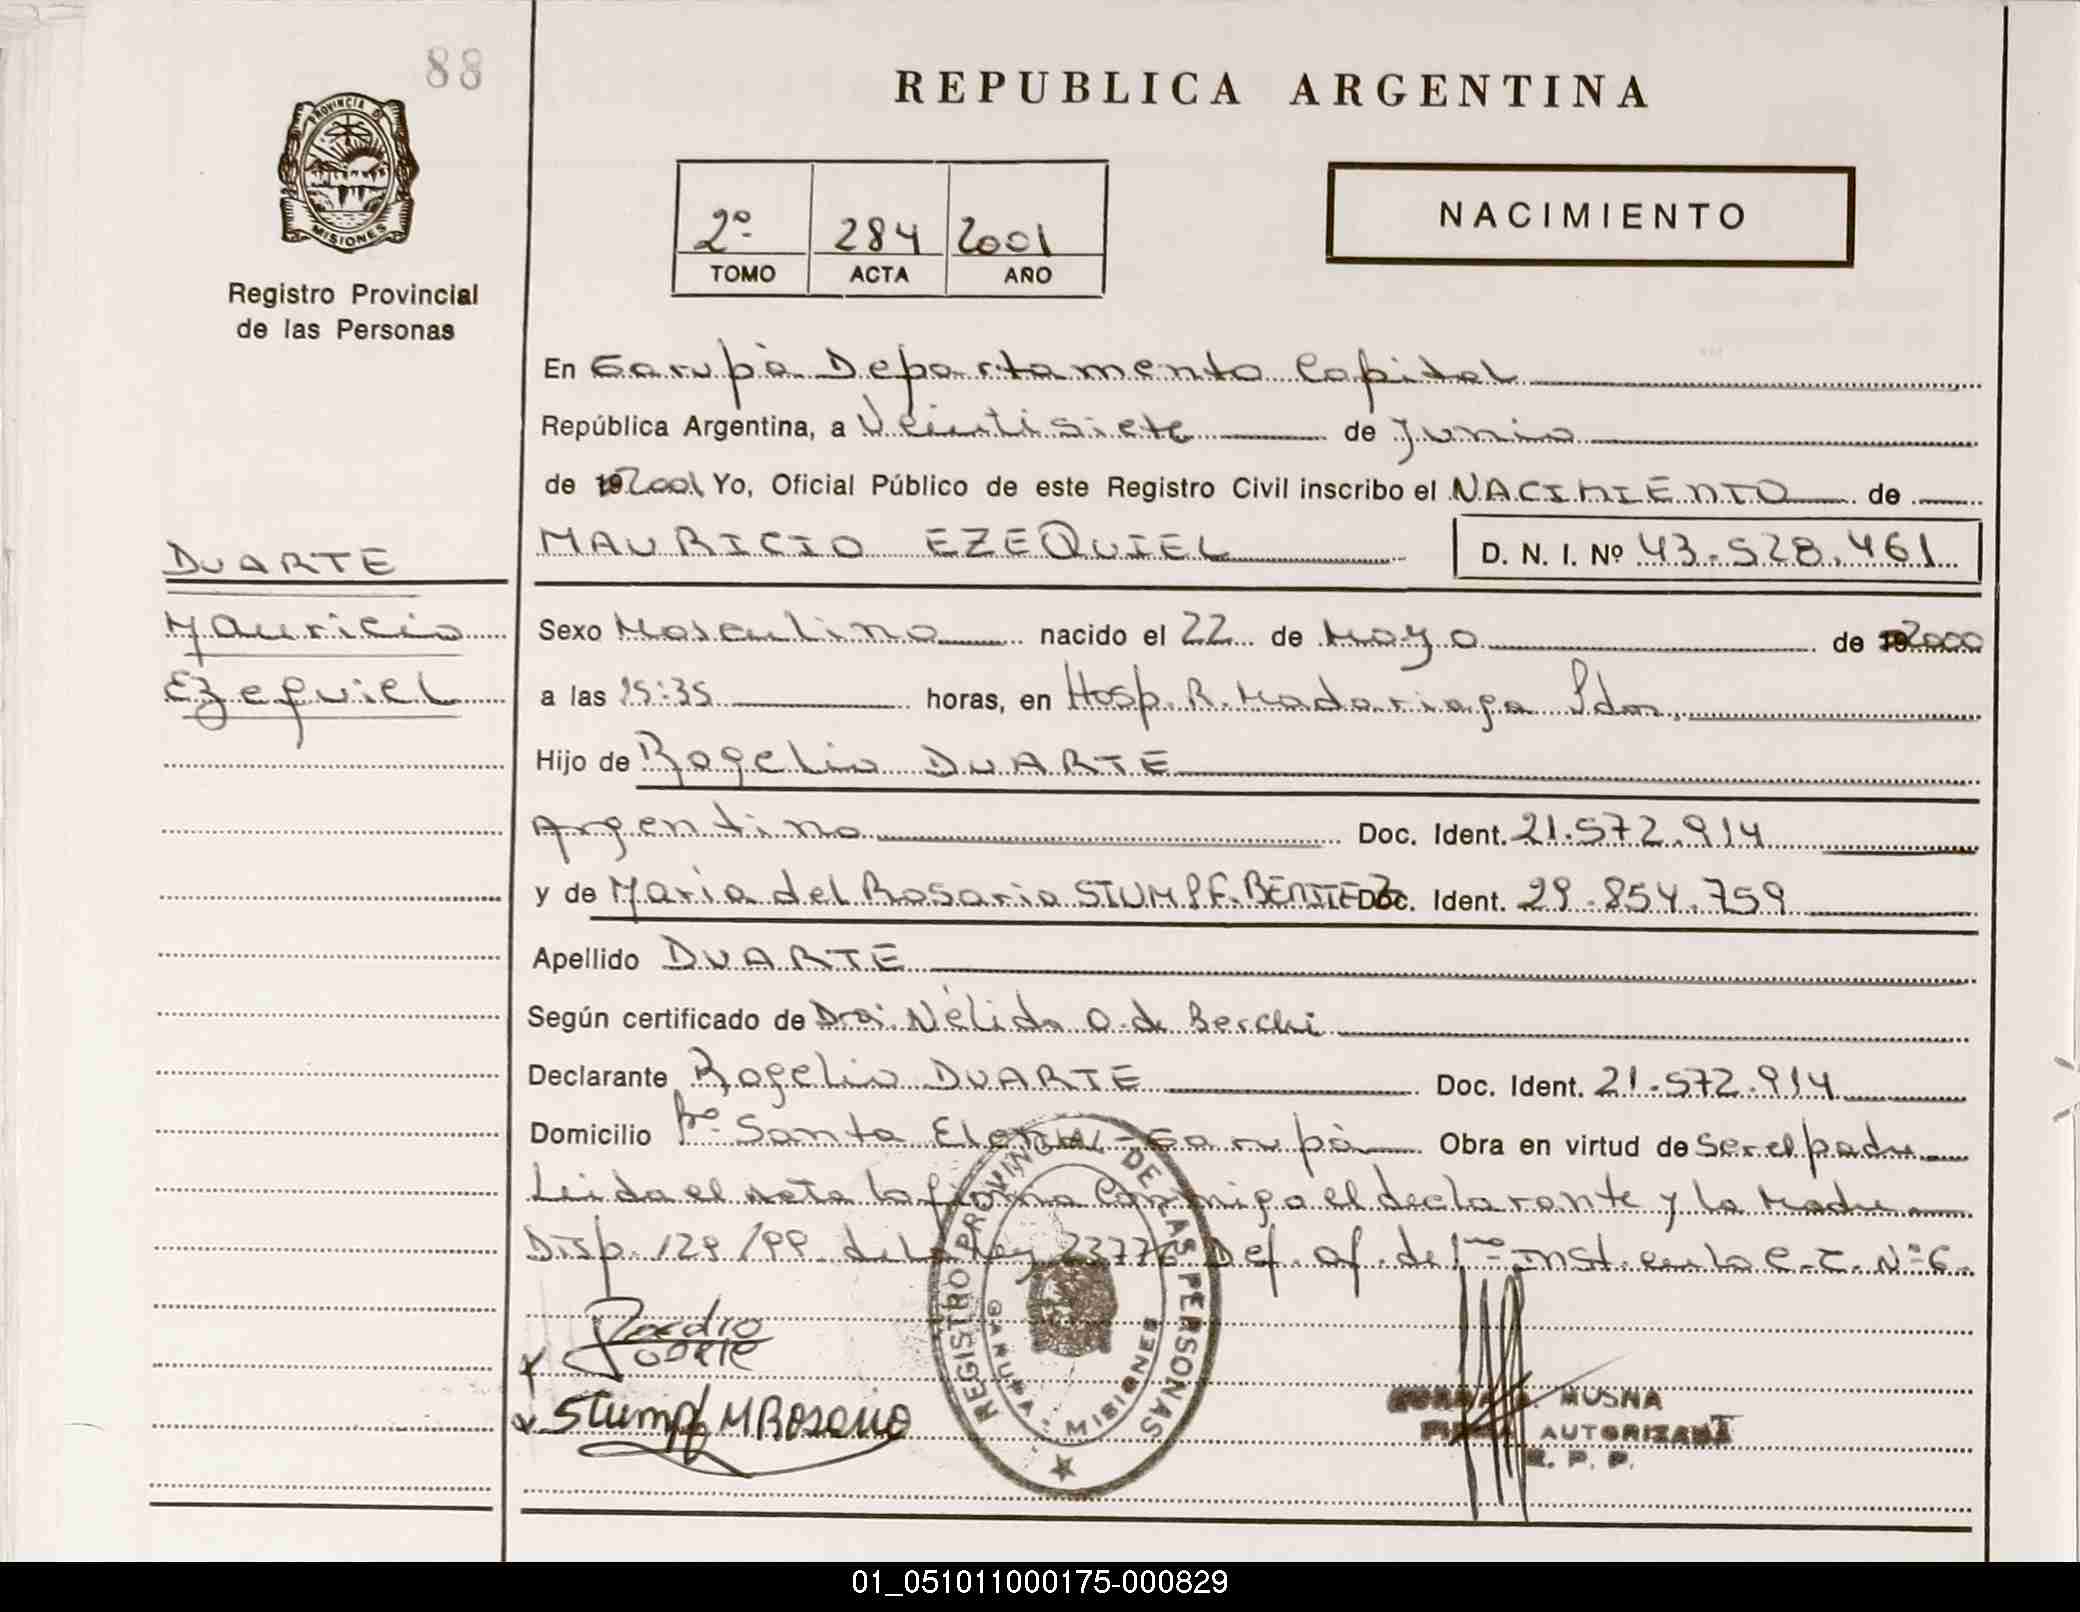 88
PROVINCIA DE
MISIONES
Registro Provincial
de las Personas
REPUBLICA ARGENTINA
2º 284 2001
TOMO ACTA AÑO
NACIMIENTO
En Garupà Departamento Capital
República Argentina, a Veintisiete de Junio
de 192001 Yo, Oficial Público de este Registro Civil inscribo el NACIMIENTO de
MAURICIO EZEQUIEL D. N. I. Nº 43.528.461
DUARTE
Mauricio
Ezequiel
Sexo Masculino nacido el 22 de Mayo de 192000
a las 15:35 horas, en Hosp. R. Madariaga Pdas.
Hijo de Rogelio DUARTE
Argentino Doc. Ident. 21.572.914
y de Maria del Rosario STUMPF. BENITEZ Doc. Ident. 29.854.759
Apellido DUARTE
Según certificado de Dra. Nélida O. de Berchi
Declarante Rogelio DUARTE Doc. Ident. 21.572.914
Domicilio Bº Santa Elena - Garupà Obra en virtud de Ser el padre
Leida el acta la firma Conmigo el declarante y la Madre
Disp. 129/99 de la Ley 23776 Def. of. de 1ª INST. en lo C. C. Nº 6.
Duarte
Stumpf M Rosario
REGISTRO PROVINCIAL DE LAS PERSONAS
GARUPA - MISIONES
MUSNA
FIRMA AUTORIZADA
R. P. P.
01_051011000175-000829